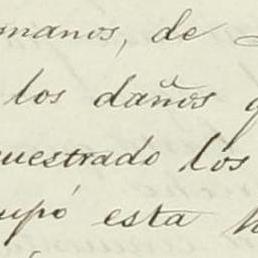 manos, de
los daños q
uestrado los
upó esta h